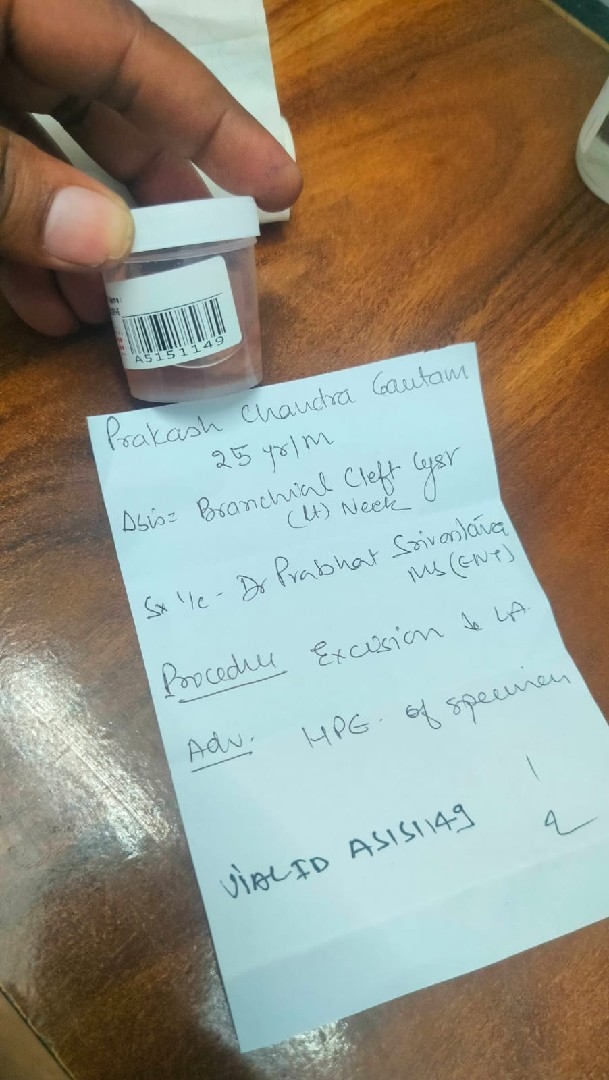 A5151149
Prakash Chandra Gautam
25 yr/m
Δsis= Branchial Cleft Cyst
(Lt) Neck
Sx I/c - Dr Prabhat Srivastava
MS (ENT)
Procedure Excision LA
Adv. HPE of specimen
VIAL ID A5151149